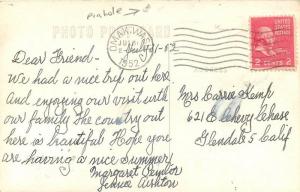 pinhole
PHOTO POST CARD
OMAK, WASH.
1952
UNITED STATES POSTAGE
2 CENTS 2
July 21-52
Dear Friend -
We had a nice trip out here
And enjoying our visit with
our family The country out
here is beautiful Hope you
are having a nice Summer
Margaret
Mrs Carrie Kemp
621 E Chevy Chase
Glendale 5 Calif